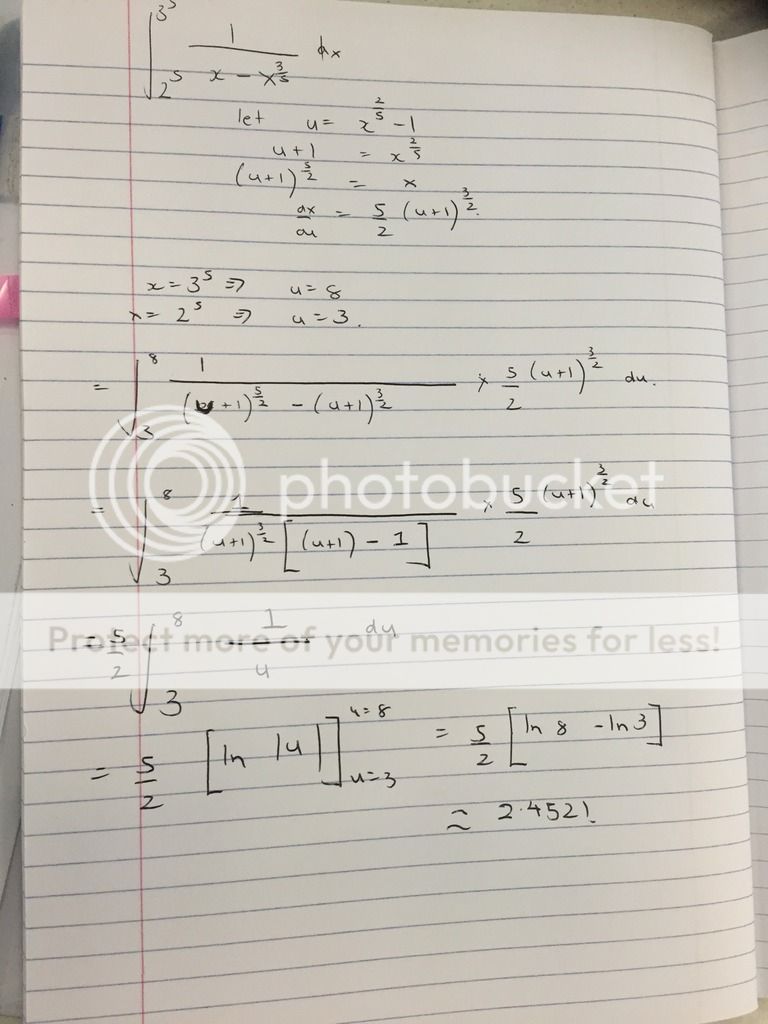 ∫_{2^5}^{3^5} 1/(x - x^{3/5}) dx
let u = x^{2/5} - 1
u+1 = x^{2/5}
(u+1)^{5/2} = x
dx/du = 5/2 (u+1)^{3/2}.
x = 3^5 ⇒ u = 8
x = 2^5 ⇒ u = 3.
= ∫_3^8 1/((u+1)^{5/2} - (u+1)^{3/2}) × 5/2 (u+1)^{3/2} du.
photobucket
= ∫_3^8 1/((u+1)^{3/2} [(u+1) - 1]) × 5/2 (u+1)^{3/2} du
Protect more of your memories for less!
= 5/2 ∫_3^8 1/u du
= 5/2 [ln |u|]_{u=3}^{u=8} = 5/2 [ln 8 - ln 3]
≈ 2.4521.